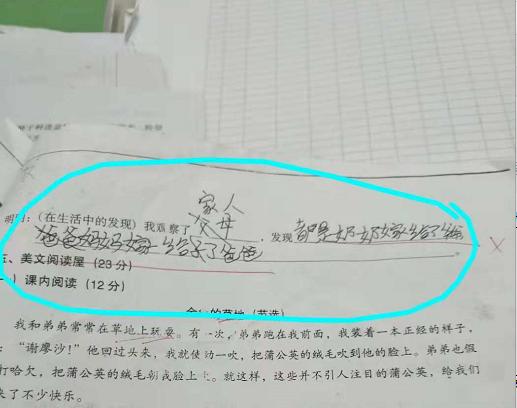 家人
明明：（在生活中的发现）我观察了父母，发现都是奶奶嫁给了爷
爸爸妈妈嫁给了爸爸
五、美文阅读屋（23分）
一）课内阅读（12分）
的草地（节选）
我和弟弟常常在草地上玩耍。有一次，弟弟跑在我前面，我装着一本正经的样子，
：“谢廖沙！”他回过头来，我就使劲一吹，把蒲公英的绒毛吹到他的脸上。弟弟也假
打哈欠，把蒲公英的绒毛朝我脸上。就这样，这些并不引人注目的蒲公英，给我们
来了不少快乐。